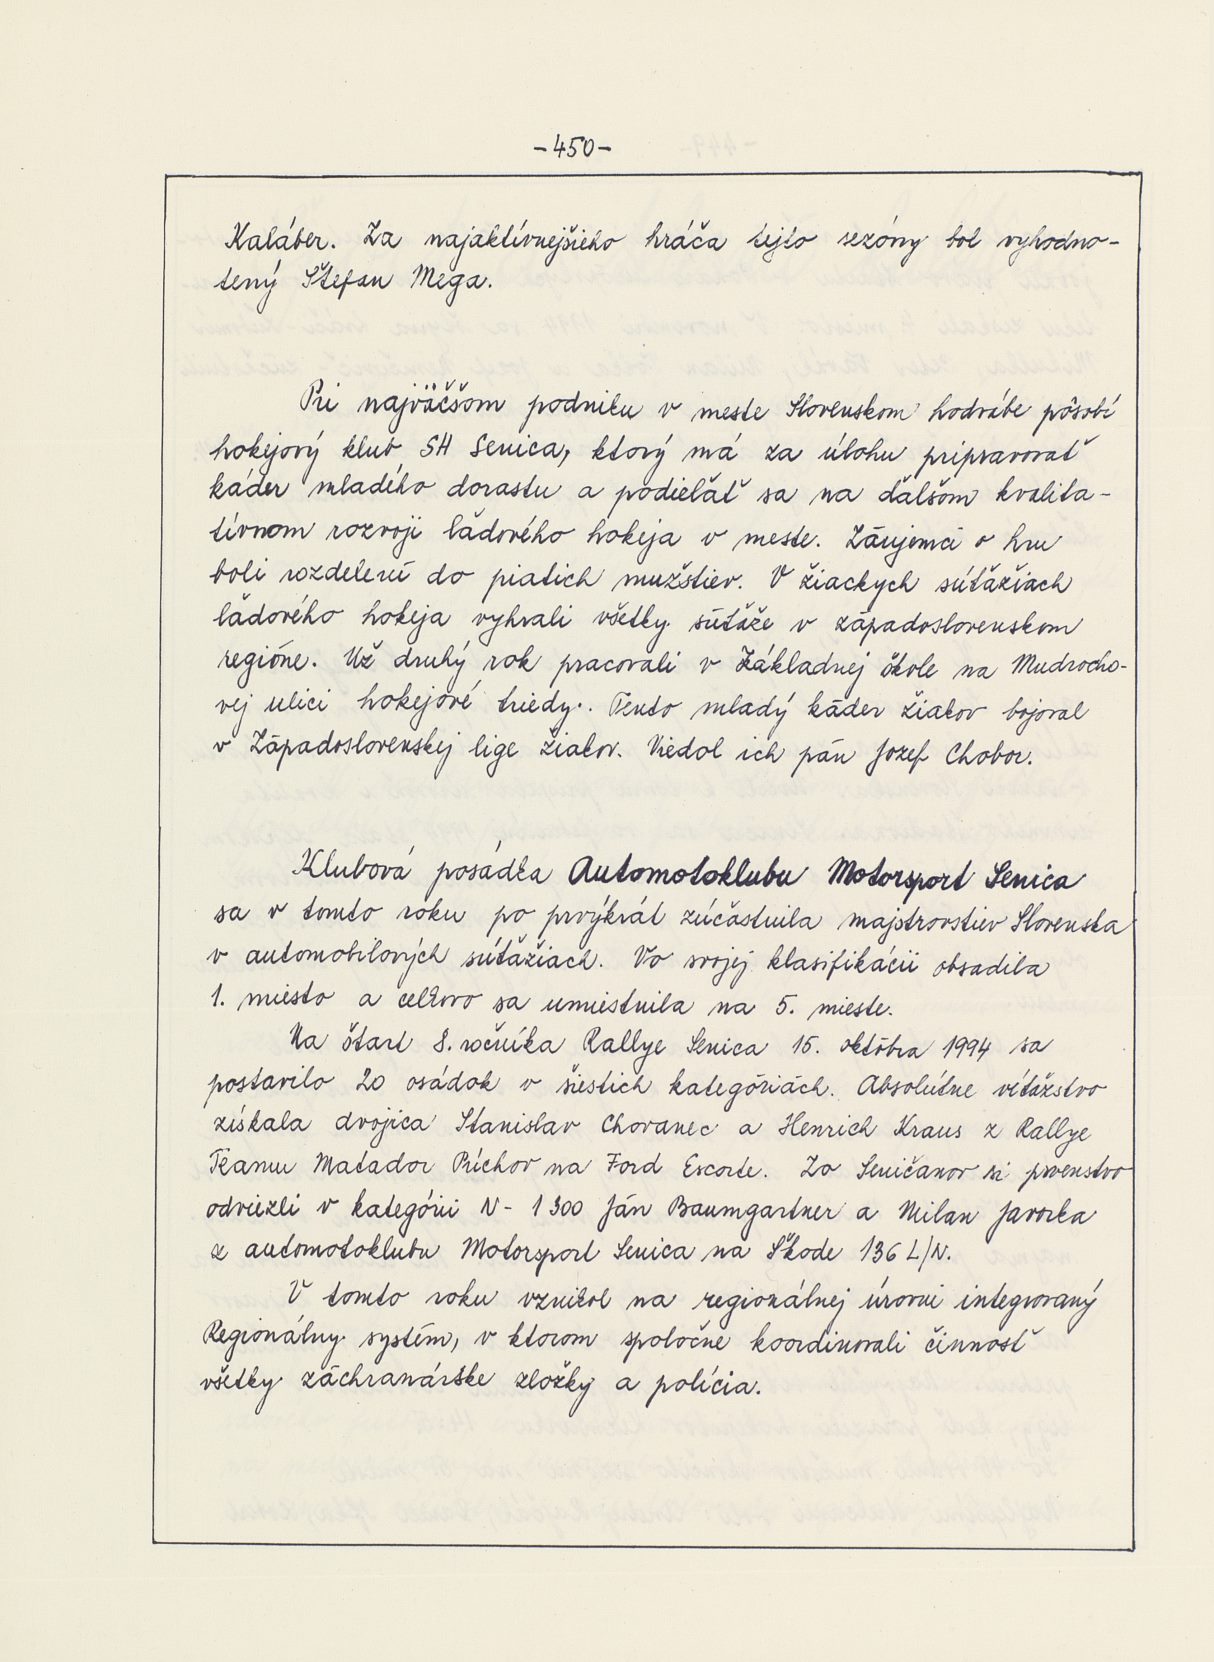 -450-
Kaláber. Za najaktívnejšieho hráča tejto sezóny bol vyhodno-
tený Štefan Mega.
Pri najväčšom podniku v meste Slovenskom hodvábe pôsobí
hokejový klub SH Senica, ktorý má za úlohu pripravovať
káder mladého dorastu a podieľať sa na ďalšom kvalita-
tívnom rozvoji ľadového hokeja v meste. Záujemci o hru
boli rozdelení do piatich mužstiev. V žiackych súťažiach
ľadového hokeja vyhrali všetky súťaže v západoslovenskom
regióne. Už druhý rok pracovali v Základnej škole na Mudrocho-
vej ulici hokejové triedy. Tento mladý káder žiakov bojoval
v Západoslovenskej lige žiakov. Viedol ich pán Jozef Chobor.
Klubová posádka Automotoklubu Motorsport Senica
sa v tomto roku po prvýkrát zúčastnila majstrovstiev Slovenska
v automobilových súťažiach. Vo svojej klasifikácii obsadila
1. miesto a celkovo sa umiestnila na 5. mieste.
Na štart 8. ročníka Rallye Senica 15. októbra 1994 sa
postavilo 20 osádok v šiestich kategóriách. Absolútne víťažstvo
získala dvojica Stanislav Chovanec a Henrich Kraus z Rallye
Teamu Matador Púchov na Ford Escorte. Zo Seničanov si prvenstvo
odviezli v kategórii N-1300 Ján Baumgartner a Milan Javorka
z automotoklubu Motorsport Senica na Škode 136 L/N.
V tomto roku vznikol na regionálnej úrovni integrovaný
Regionálny systém, v ktorom spoločne koordinovali činnosť
všetky záchranárske zložky a polícia.